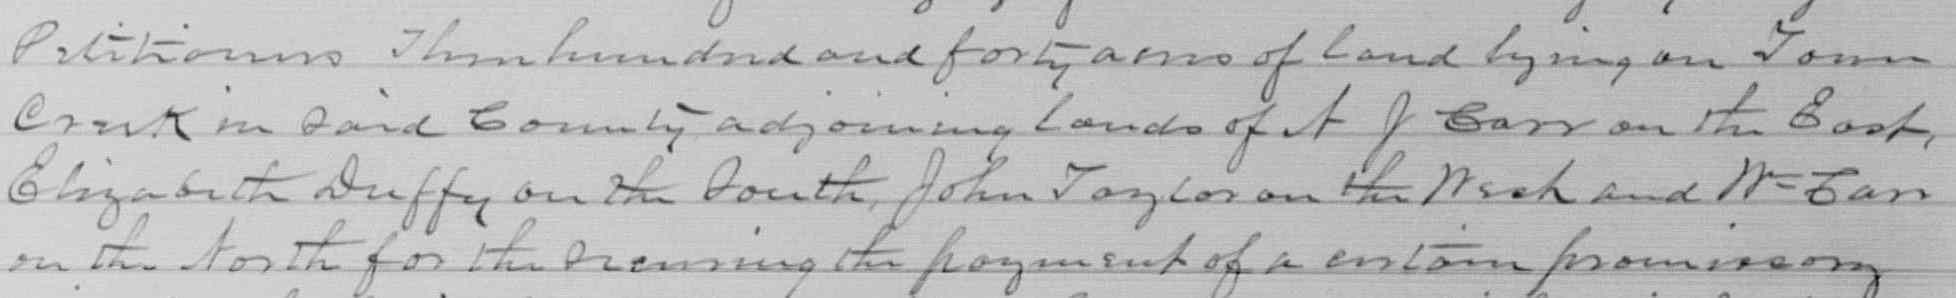 Petitioners Three hundred and forty acres of land lying on Town
Creek in said County adjoining lands of A J Carr on the East,
Elizabeth Duffy on the South, John Taylor on the West and Wm Carr
on the North for the securing the payment of a certain promissory